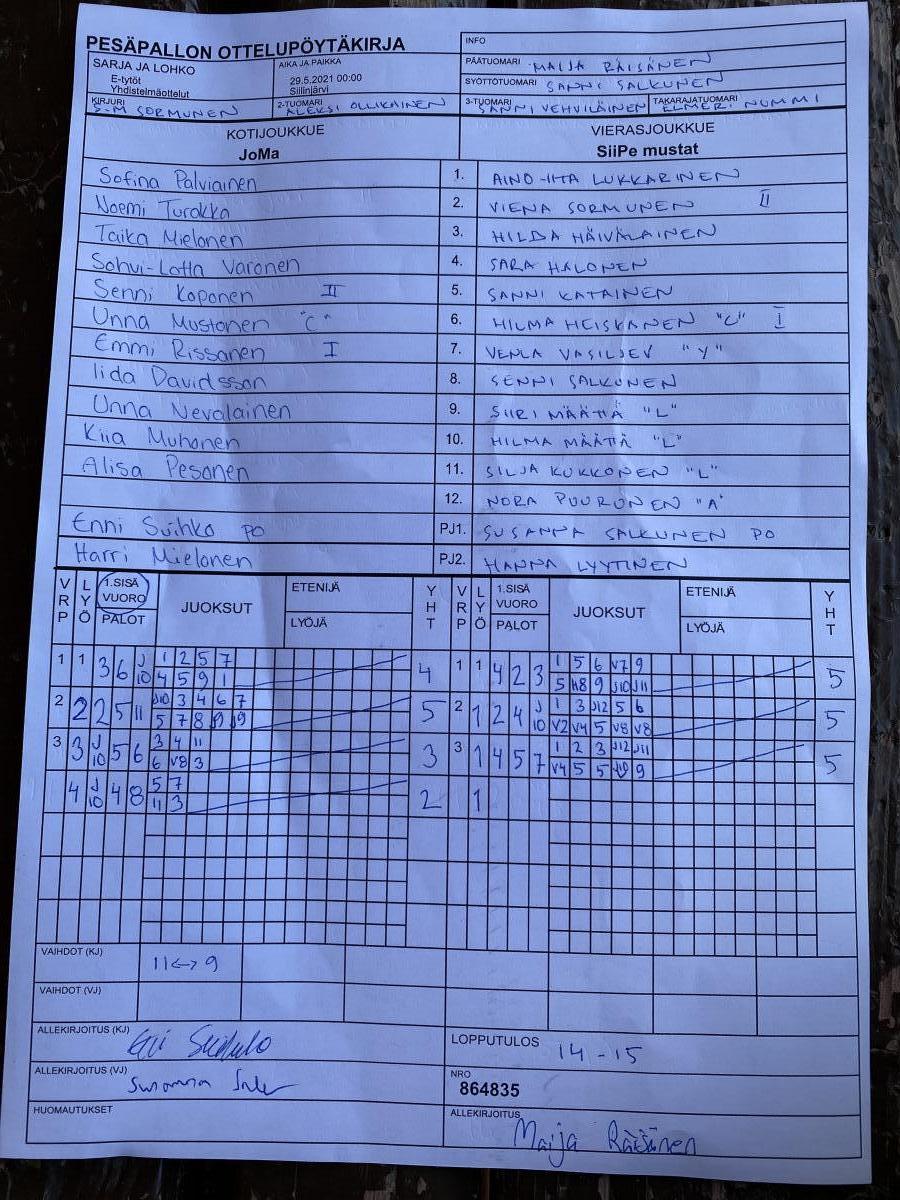 PESÄPALLON OTTELUPÖYTÄKIRJA
INFO
SARJA JA LOHKO
E-tytöt
Yhdistelmäottelut
AIKA JA PAIKKA
29.5.2021 00:00
Siilinjärvi
PÄÄTUOMARI MAIJA RÄISÄNEN
SYÖTTÖTUOMARI SANNI SALKUNEN
KIRJURI SORMUNEN
2-TUOMARI ALEKSI OLLIKAINEN
3-TUOMARI SANNI VEHVILÄINEN
TAKARAJATUOMARI ELMERI NUMMI
KOTIJOUKKUE
JoMa
VIERASJOUKKUE
SiiPe mustat
Sofina Palviainen 1. AINO-IITA LUKKARINEN
Noemi Turakka 2. VIENA SORMUNEN II
Taika Mielonen 3. HILDA HÄIVÄLÄINEN
Sohvi-Lotta Varonen 4. SARA HALONEN
Senni Koponen II 5. SANNI KATAINEN
Unna Mustonen "C" 6. HILMA HEISKANEN "C" I
Emmi Rissanen I 7. VENLA VASILJEV "Y"
Iida Davidsson 8. SENNI SALKUNEN
Unna Nevalainen 9. SIIRI MÄÄTTÄ "L"
Kiia Muhonen 10. HILMA MÄÄTTÄ "L"
Alisa Pesonen 11. SILJA KUKKONEN "L"
12. NORA PUURUNEN "A"
Enni Suihko PO PJ1. SUSANNA SALKUNEN PO
Harri Mielonen PJ2. HANNA LYYTINEN
VRP LYÖ 1.SISÄ VUORO PALOT JUOKSUT ETENIJÄ LYÖJÄ YHT VRP LYÖ 1.SISÄ VUORO PALOT JUOKSUT ETENIJÄ LYÖJÄ YHT
1 1 3 6 J10 1 2 5 7 4 1 1 4 2 3 1 5 6 V7 9 5
4 5 9 1 5 J8 9 J10 J11
2 2 2 5 11 J10 3 4 6 7 5 2 1 2 4 J10 1 3 J12 5 6 5
5 7 8 J9 V2 V4 5 V8 V8
3 3 J10 5 6 3 4 11 3 3 1 4 5 7 1 2 3 J12 J11 5
6 V8 3 V4 5 5 9
4 J10 4 8 5 7 2 1
11 3
VAIHDOT (KJ) 11<->9
VAIHDOT (VJ)
ALLEKIRJOITUS (KJ)
LOPPUTULOS 14-15
ALLEKIRJOITUS (VJ)
NRO
864835
HUOMAUTUKSET
ALLEKIRJOITUS
Maija Räisänen